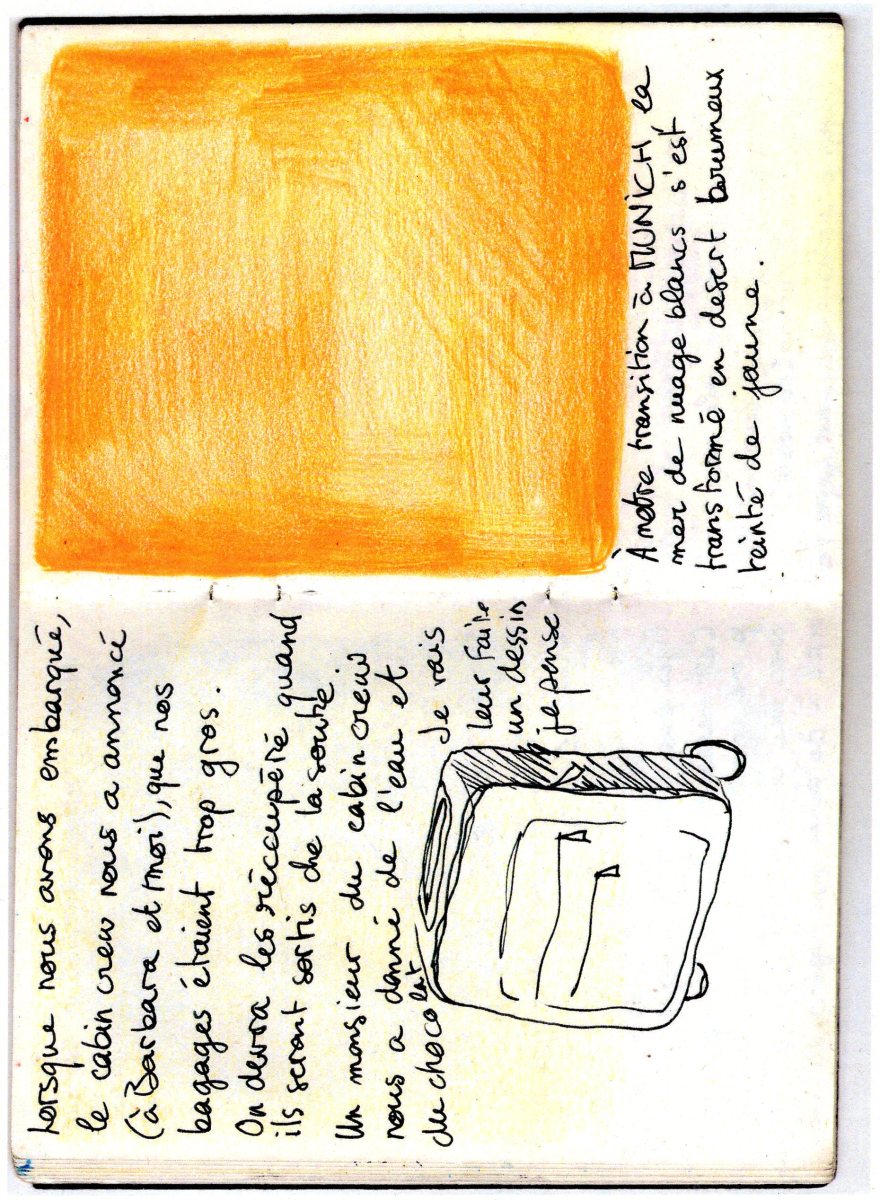 Lorsque nous avons embarqué,
le cabin crew nous a annoncé
(à Barbara et moi), que nos
bagages étaient trop gros.
On devra les réccupéré quand
ils seront sortis de la soute.
Un monsieur du cabin crew
nous a donné de l'eau et
du chocolat. Je vais
leur faire
un dessin
je pense
À notre transition à MUNICH, la
mer de nuage blancs s'est
transformé en désert brumeux
teinté de jaune.